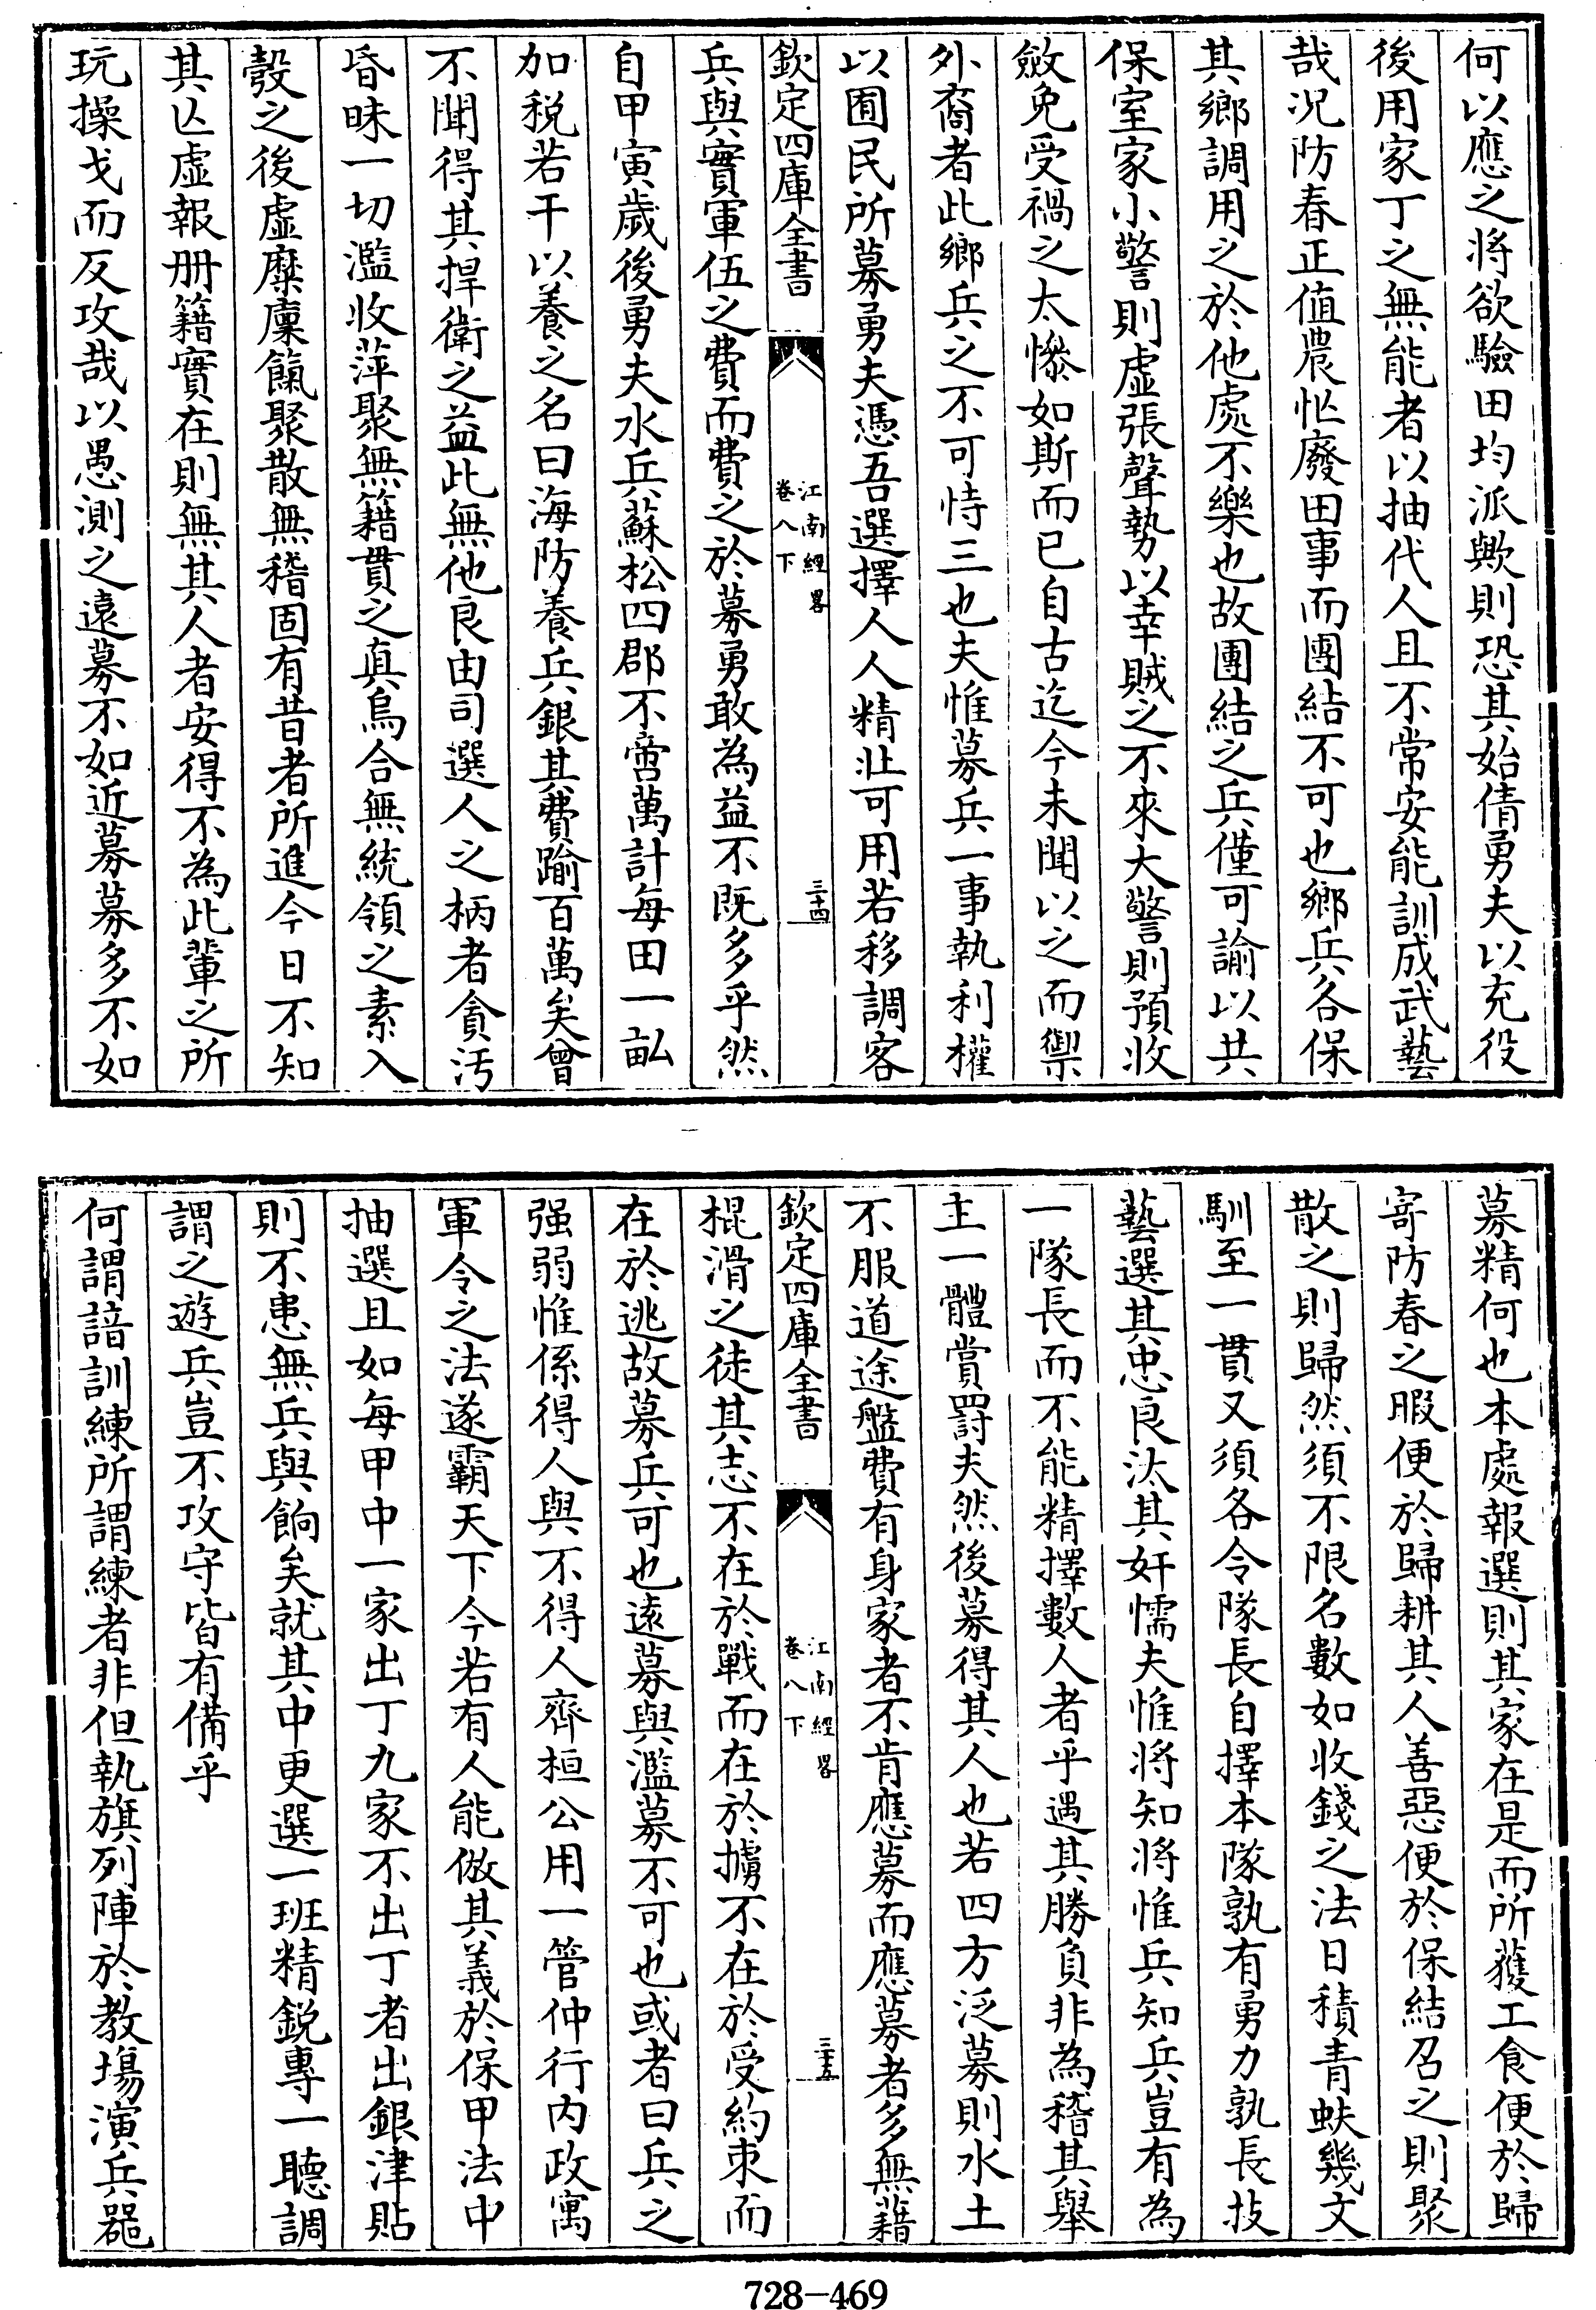 何以應之將欲驗田均派歟則恐其始倩勇夫以充役
後用家丁之無能者以抽代人且不常安能訓成武藝
哉况防春正值農忙廢田事而團結不可也鄉兵各保
其鄉調用之於他處不樂也故團結之兵僅可諭以共
保室家小警則虛張聲勢以幸賊之不來大警則預收
斂免受禍之太慘如斯而已自古迄今未聞以之而禦
外裔者此鄉兵之不可恃三也夫惟募兵一事執利權
以囿民所募勇夫憑吾選擇人人精壯可用若移調客
欽定四庫全書
江南經畧
卷八下
三十四
兵與實軍伍之費而費之於募勇敢為益不既多乎然
自甲寅歲後勇夫水兵蘇松四郡不啻萬計每田一畝
加税若干以養之名曰海防養兵銀其費踰百萬矣曾
不聞得其捍衛之益此無他良由司選人之柄者貪汚
昏昧一切濫收萍聚無籍貫之真烏合無統領之素入
彀之後虛糜廩餼聚散無稽固有昔者所進今日不知
其亾虛報册籍實在則無其人者安得不為此輩之所
玩操戈而反攻哉以愚測之遠募不如近募募多不如
募精何也本處報選則其家在是而所獲工食便於歸
寄防春之暇便於歸耕其人善惡便於保結召之則聚
散之則歸然須不限名數如收錢之法日積青蚨幾文
馴至一貫又須各令隊長自擇本隊孰有勇力孰長技
藝選其忠良汰其奸懦夫惟將知將惟兵知兵豈有為
一隊長而不能精擇數人者乎遇其勝負非為稽其舉
主一體賞罰夫然後募得其人也若四方泛募則水土
不服道途盤費有身家者不肯應募而應募者多無藉
欽定四庫全書
江南經畧
卷八下
三十五
棍滑之徒其志不在於戰而在於擄不在於受約束而
在於逃故募兵可也遠募與濫募不可也或者曰兵之
强弱惟係得人與不得人齊桓公用一管仲行内政寓
軍令之法遂霸天下今若有人能倣其義於保甲法中
抽選且如每甲中一家出丁九家不出丁者出銀津貼
則不患無兵與餉矣就其中更選一班精鋭專一聽調
謂之遊兵豈不攻守皆有備乎
何謂諳訓練所謂練者非但執旗列陣於教場演兵器
728-469